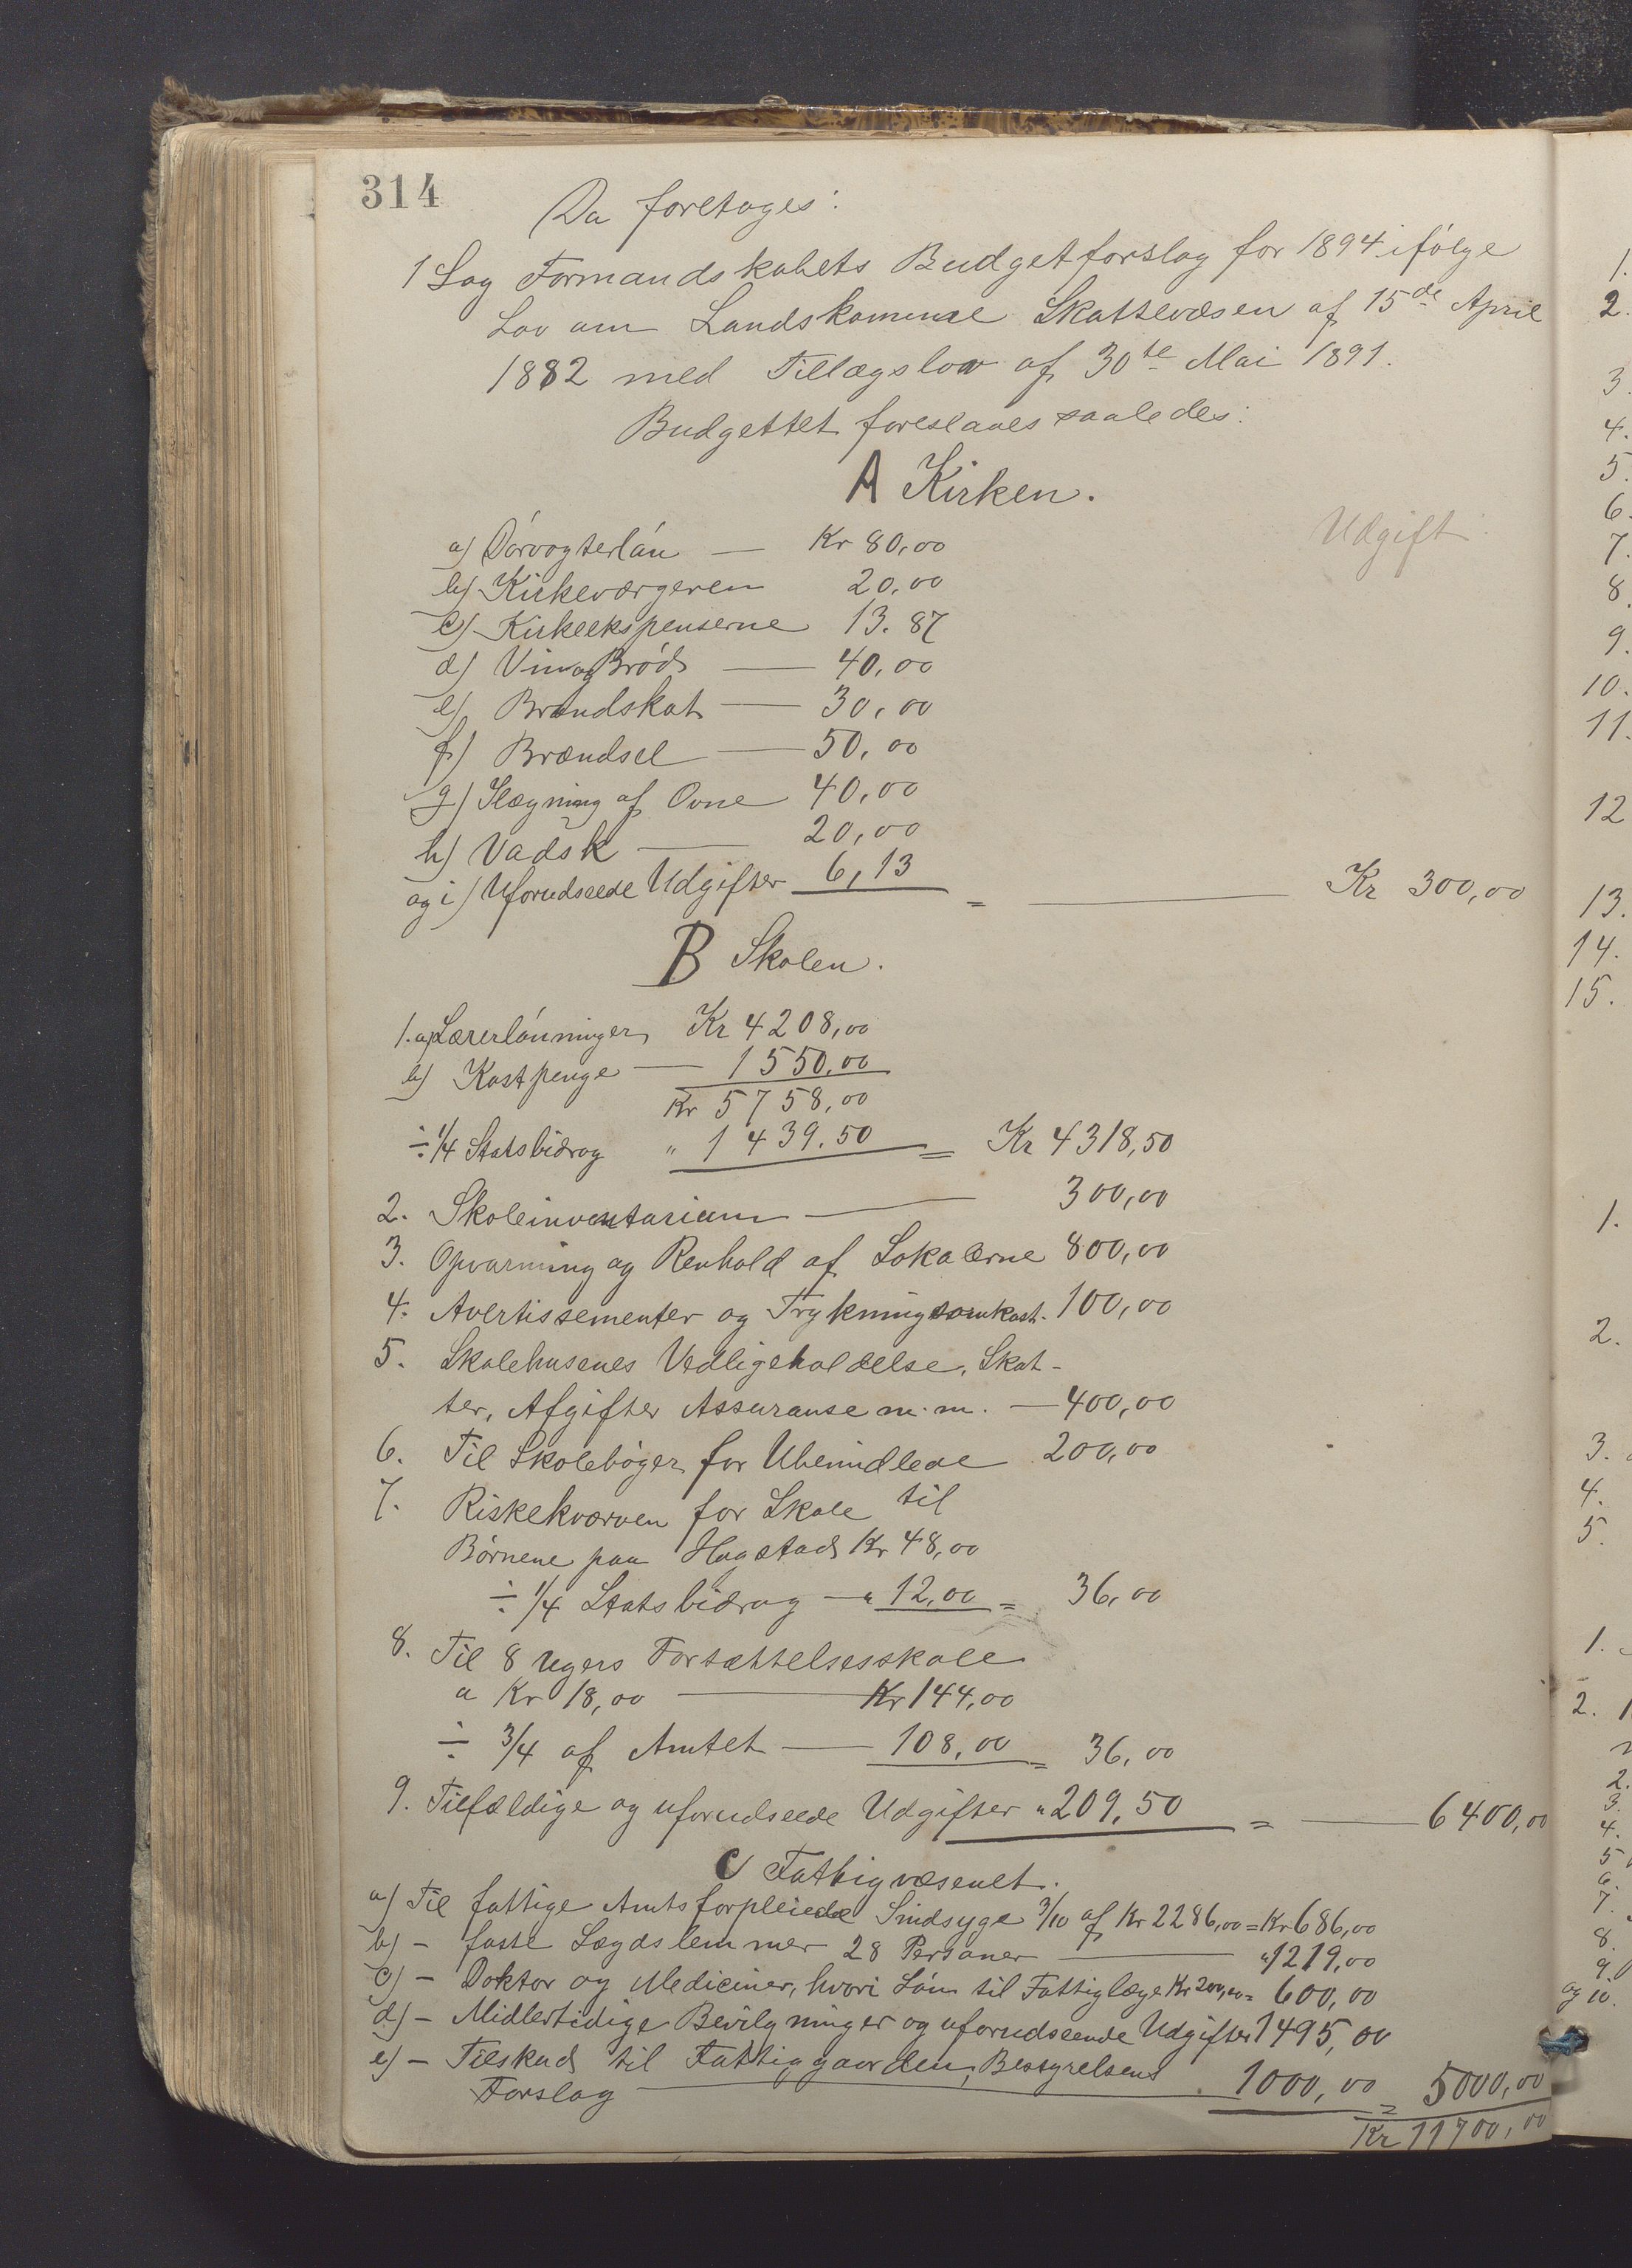 314
Da foretoges:
1 Sag Formandskabets Budgetforslag for 1894 ifølge
Lov om Landskommune Skattevæsen af 15de April
1882 med Tillægslov af 30te Mai 1891.
Budgettet foreslaaes saaledes:
A Kirken.
Udgift:
a) Dørvogterløn — Kr 80,00
b) Kirkeværgeren 20,00
c) Kirkeekspenserne 13.87
d) Vin og Brød — 40,00
e) Brandskat — 30,00
f) Brændsel — 50,00
g) Ilægning af Ovne 40,00
h) Vadsk — 20,00
og i) Uforudseede Udgifter 6,13 = — Kr 300,00
B Skolen.
1. a) Lærerlønninger Kr 4208,00
b) Kostpenge — 1550,00
Kr 5758,00
÷ 1/4 Statsbidrag " 1439.50 = Kr 4318,50
2. Skoleinventarium — 300,00
3. Opvarming og Renhold af Lokalerne 800,00
4. Avertissementer og Trykningsomkost. 100,00
5. Skolehusenes Vedligeholdelse, Skat-
ter, Afgifter Assuranse m.m. — 400,00
6. Til Skolebøger for Ubemidlede 200,00
7. Riskekværven for Skole til
Børnene paa Hogstad Kr 48,00
÷ 1/4 Statsbidrag — " 12,00 = 36,00
8. Til 8 Ugers Fortsættelsesskole
a Kr 18,00 — Kr 144,00
÷ 3/4 af Amtet — 108,00 = 36,00
9. Tilfældige og uforudseede Udgifter " 209,50 = — 6400,00
C Fattigvæsenet.
a) Til fattige Amtsforpleiede Sindsyge 3/10 af Kr 2286,00 = Kr 686,00
b) — faste Lægdslemmer 28 Personer — " 1219,00
c) — Doktor og Mediciner, hvori Løn til Fattiglæge Kr 200,00 = 600,00
d) — Midlertidige Bevilgninger og uforudseende Udgifter 1495,00
e) — Tilskud til Fattiggaarden, Bestyrelsens
Forslag — 1000,00 = 5000,00
Kr 11700,00
1.
2.
3.
4.
5.
6.
7.
8.
9.
10.
11.
12
13.
14.
15.
1.
2.
3.
4.
5.
1.
2.
2.
3.
4.
5
6.
7.
8.
9.
og 10.